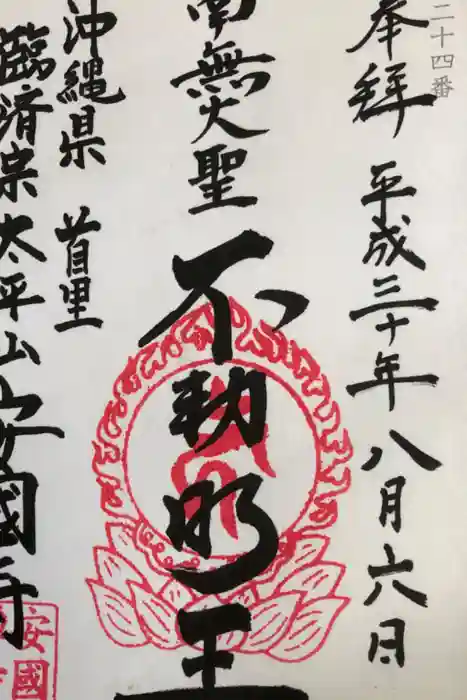 二十四番
奉拝 平成三十年八月六日
南無大聖
不動明王
沖縄県 首里
臨済宗太平山安國寺
安國